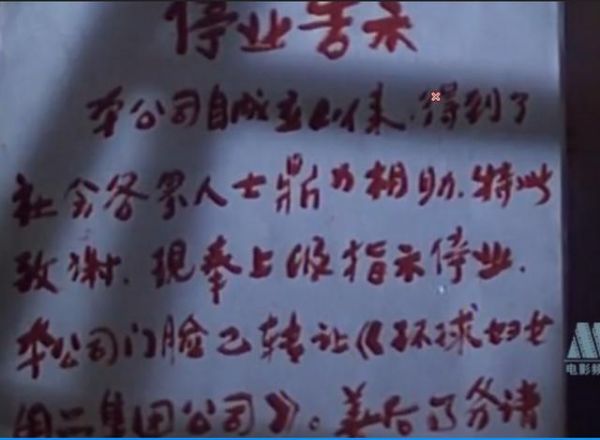 停业告示
本公司自成立以来.得到了
社会各界人士鼎力相助.特此
致谢.现奉上级指示停业.
本公司门脸已转让《环球妇女
用品集团公司》。善后事务请
电影频